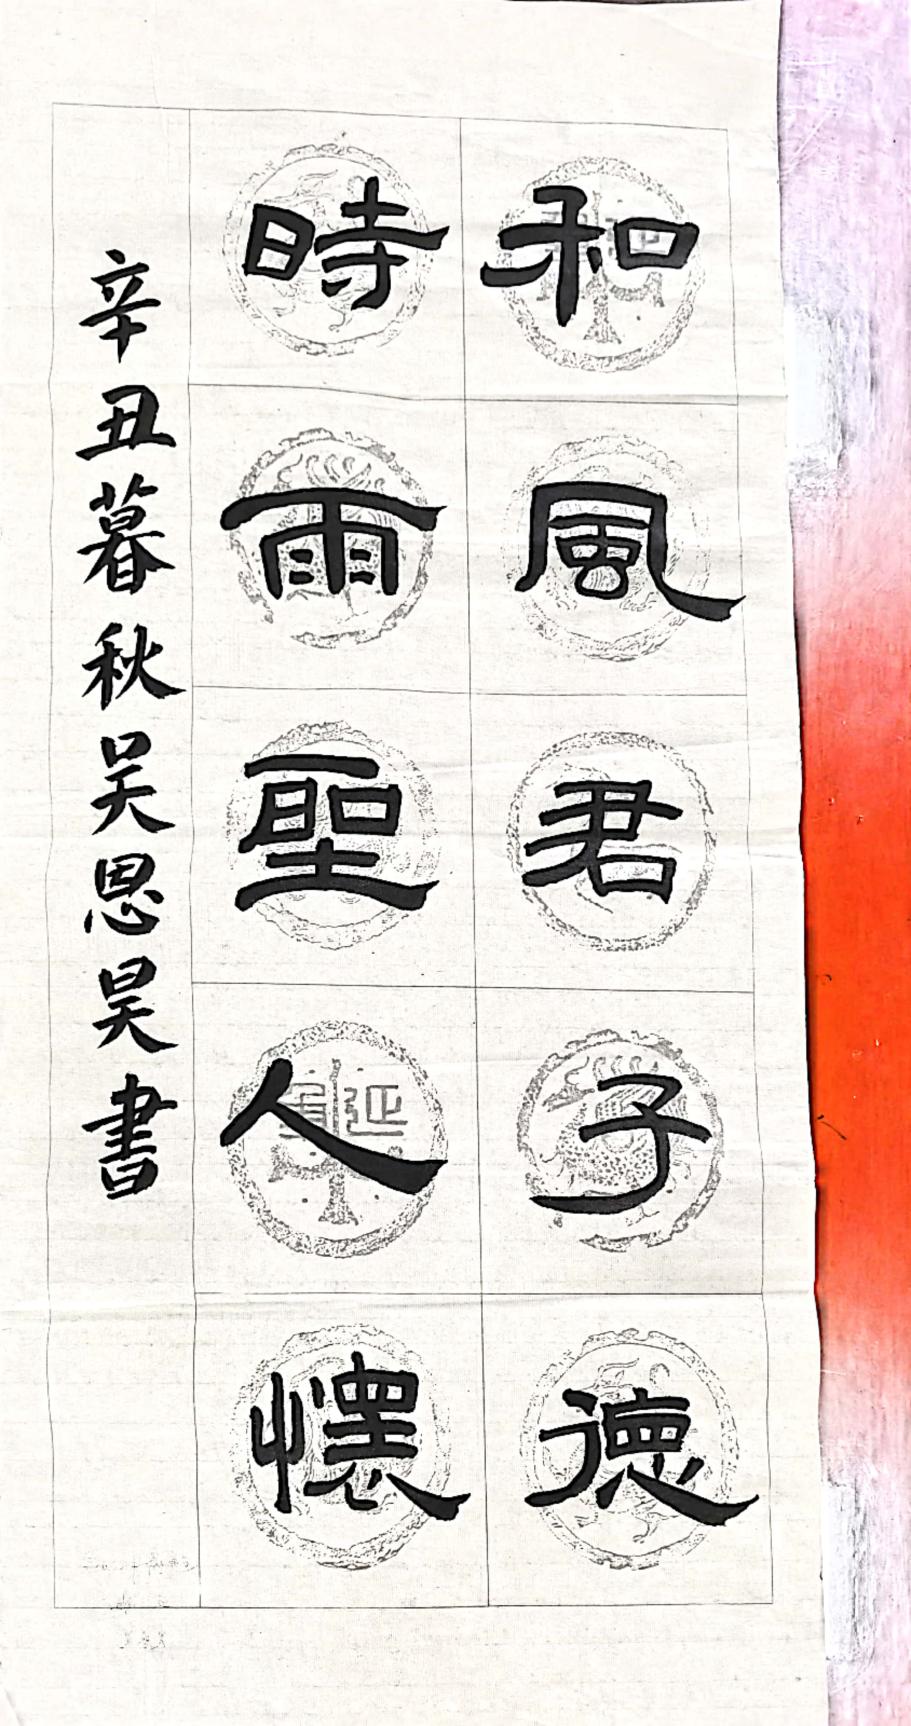 和風君子德
時雨聖人懷
辛丑暮秋吴恩昊書